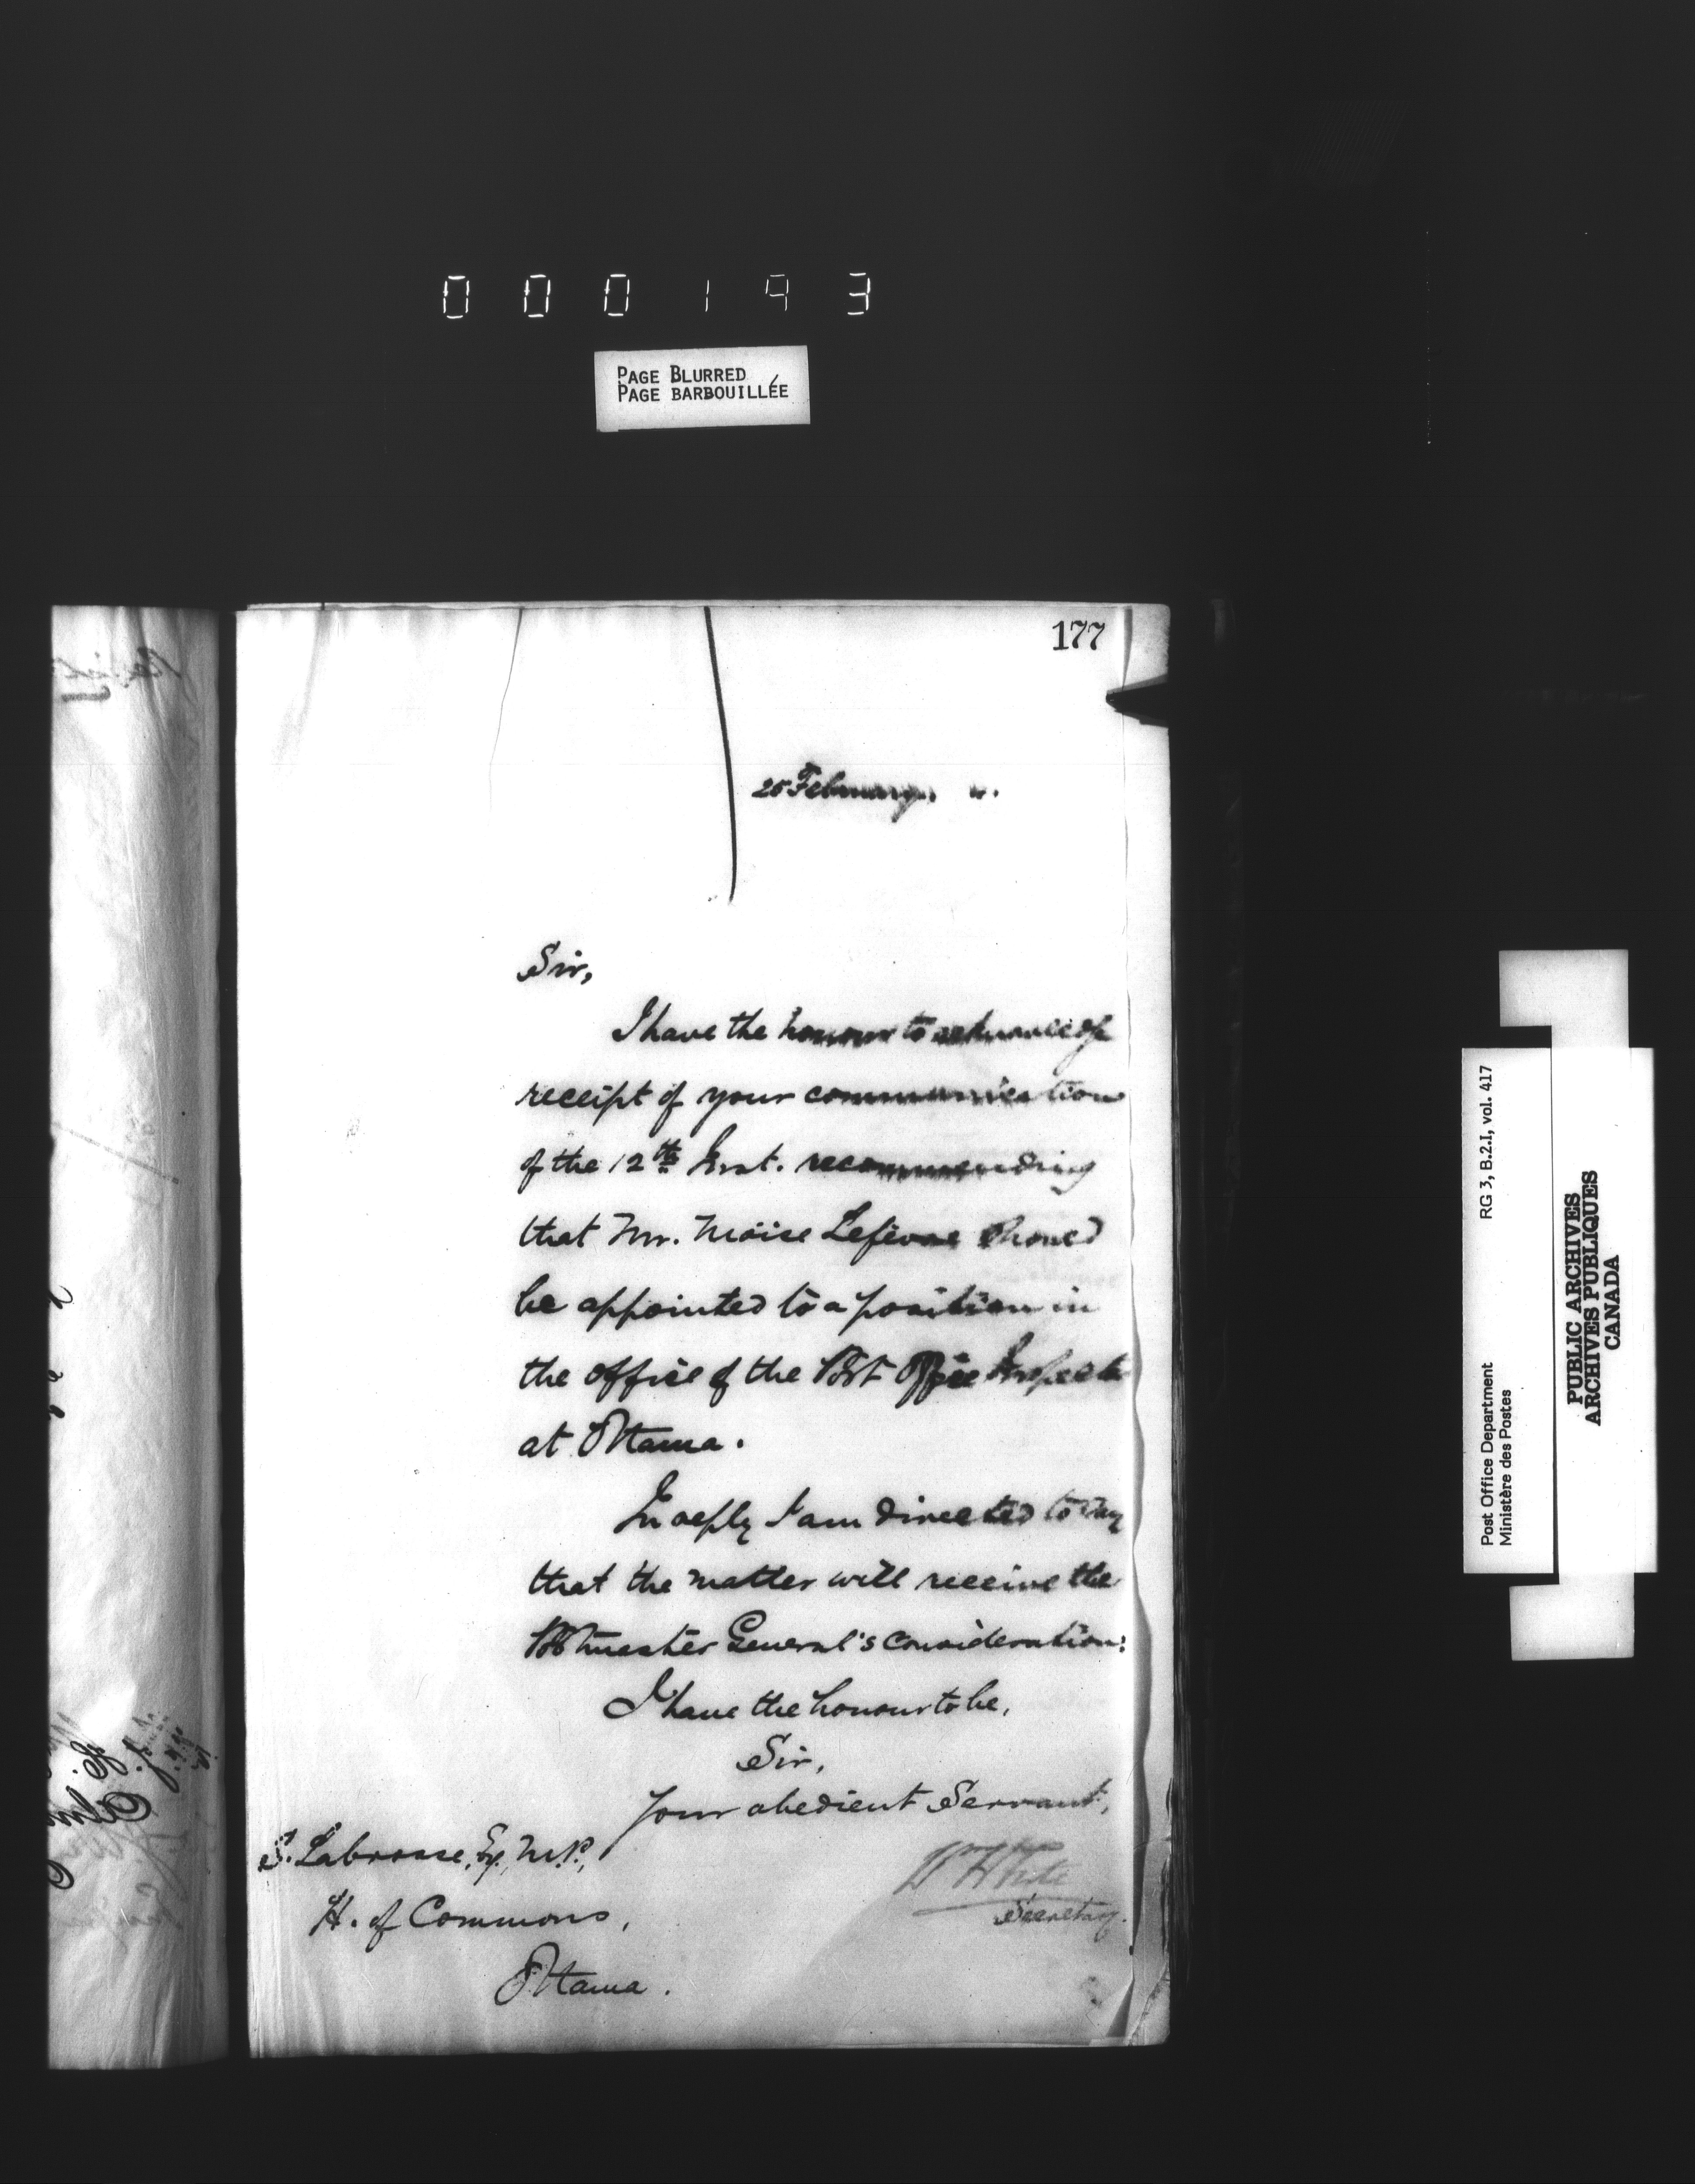 000193
PAGE BLURRED
PAGE BARBOUILLÉE
177
25 February,
Sir,
I have the honour to acknowledge
receipt of your communication
of the 12th Inst. recommending
that Mr. Moïse Lefèvre should
be appointed to a position in
the office of the Post Office Inspector
at Ottawa.
In reply I am directed to say
that the matter will receive the
Postmaster General's consideration.
I have the honour to be,
Sir,
Your obedient Servant,
W White
Secretary.
S. Labrosse, Esq., M.P.,
H. of Commons,
Ottawa.
Post Office Department RG 3, B.2.I, vol. 417
Ministère des Postes
PUBLIC ARCHIVES
ARCHIVES PUBLIQUES
CANADA